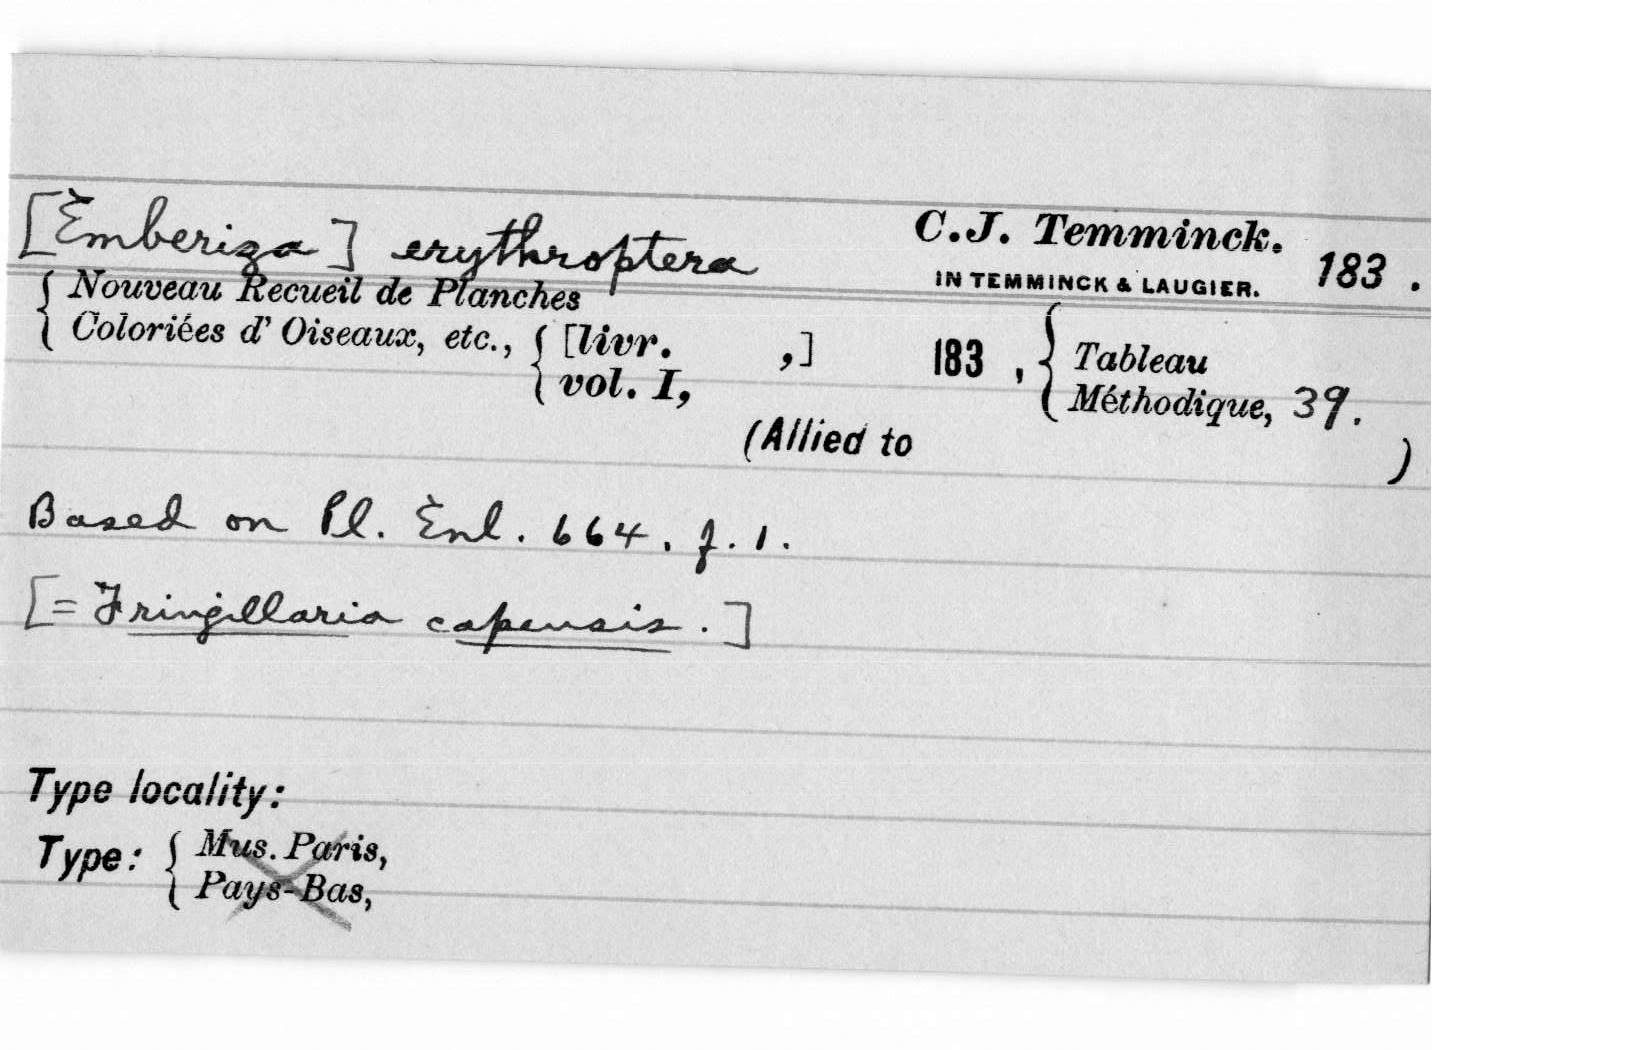 [Emberiza] erythroptera C.J. Temminck.
IN TEMMINCK & LAUGIER. 183 .
{ Nouveau Recueil de Planches
Coloriées d' Oiseaux, etc., { [livr. ,] 183 , { Tableau
vol. I, Méthodique, 39.
(Allied to )
Based on Pl. Enl. 664, f. 1.
[= Fringillaria capensis.]
Type locality:
Type: { Mus. Paris,
Pays-Bas,